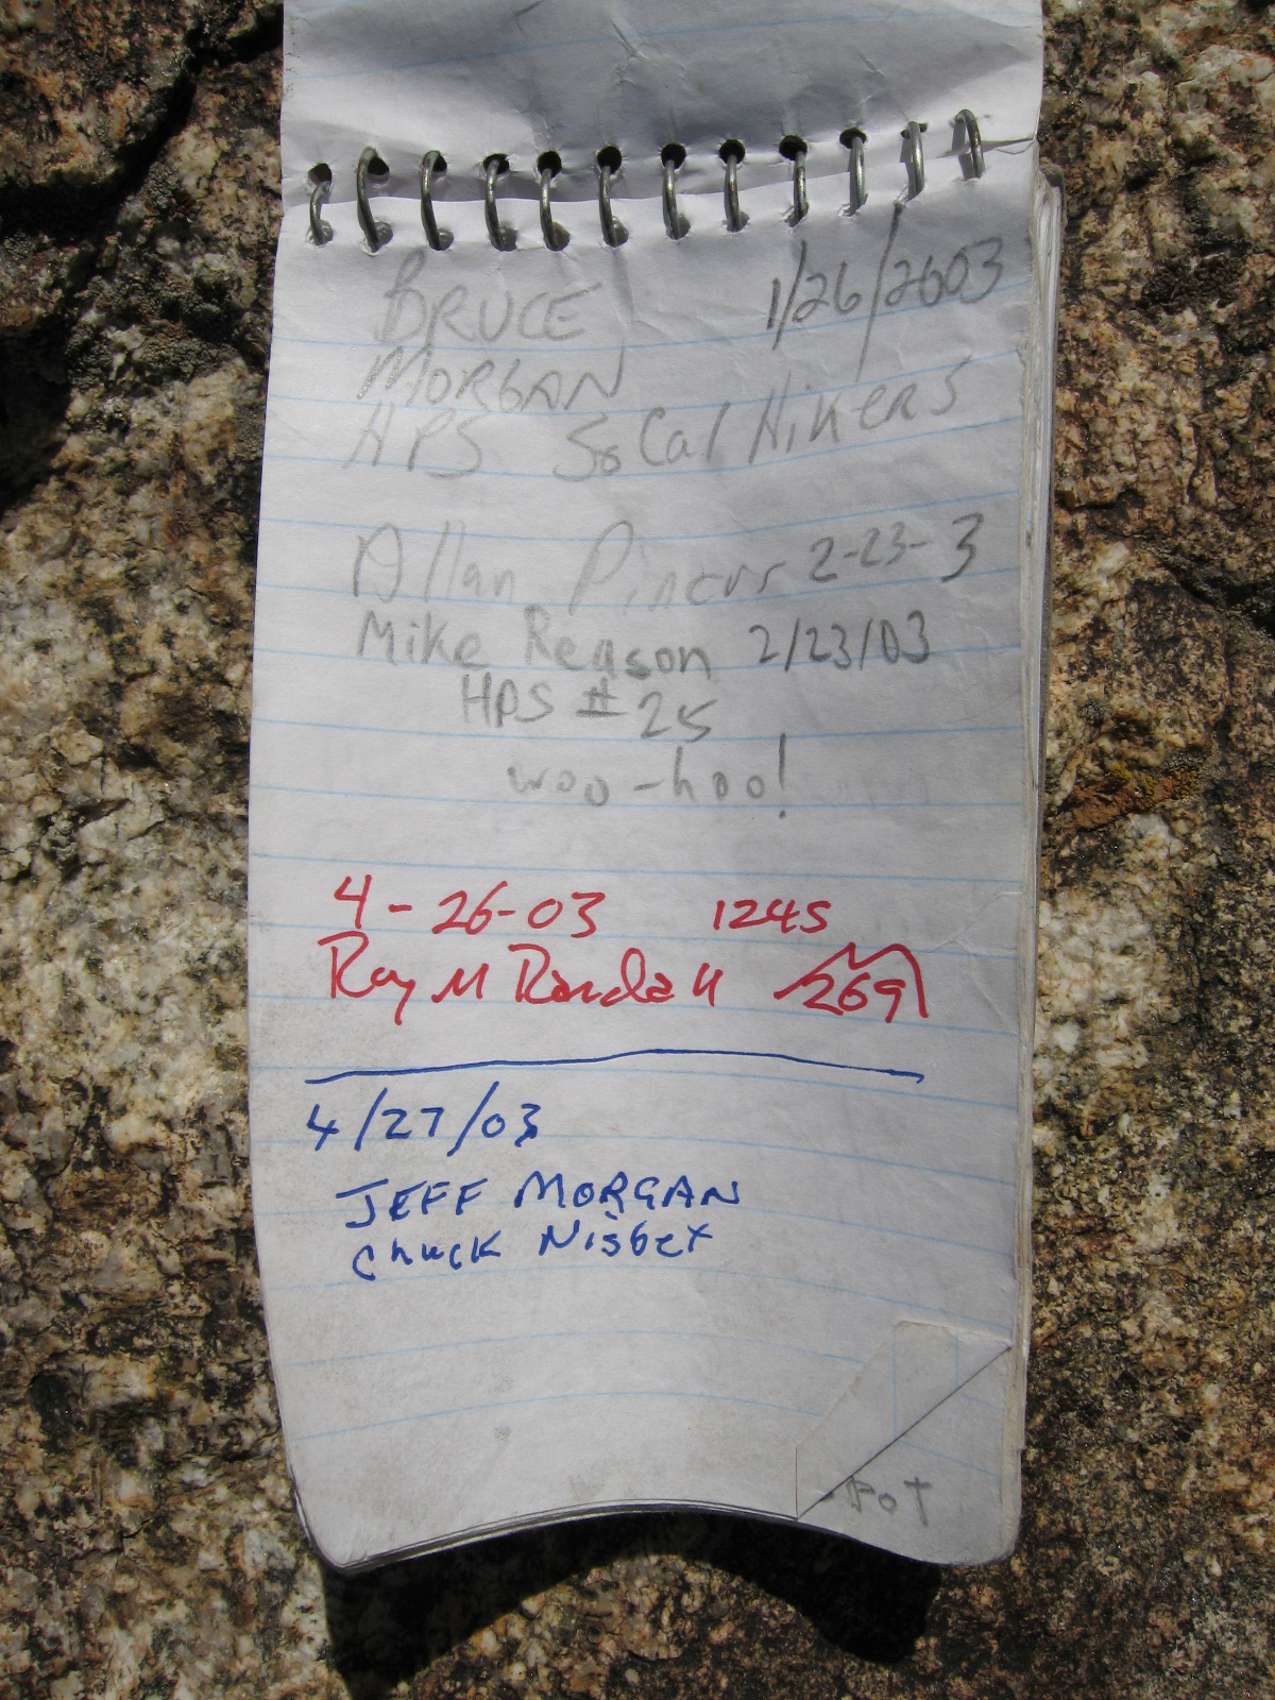 BRUCE 1/26/2003
MORGAN
HPS SoCal Hikers
Allan Pincus 2-23-3
Mike Reason 2/23/03
HPS # 25
woo-hoo!
4-26-03 1245
Roy M Randall 269
4/27/03
JEFF MORGAN
Chuck Nisbet